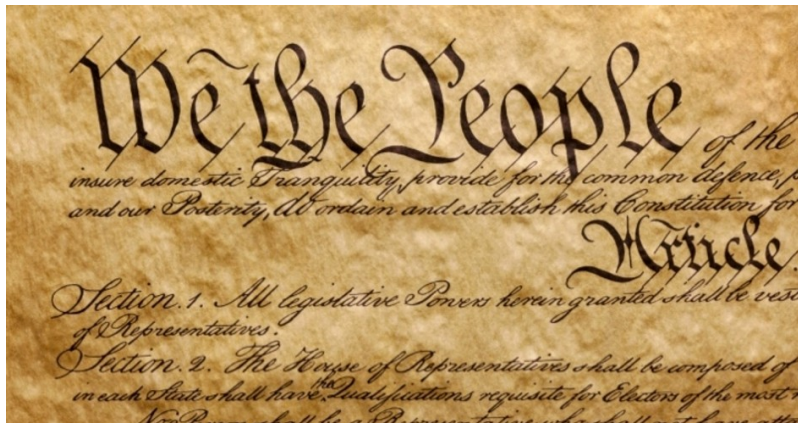 We the People of the
insure domestic Tranquility, provide for the common defence,
and our Posterity, do ordain and establish this Constitution for
Article.
Section. 1. All legislative Powers herein granted shall be vest
of Representatives.
Section. 2. The House of Representatives shall be composed of
in each State shall have the Qualifications requisite for Electors of the most
No Person shall be a Representative who shall not have atta